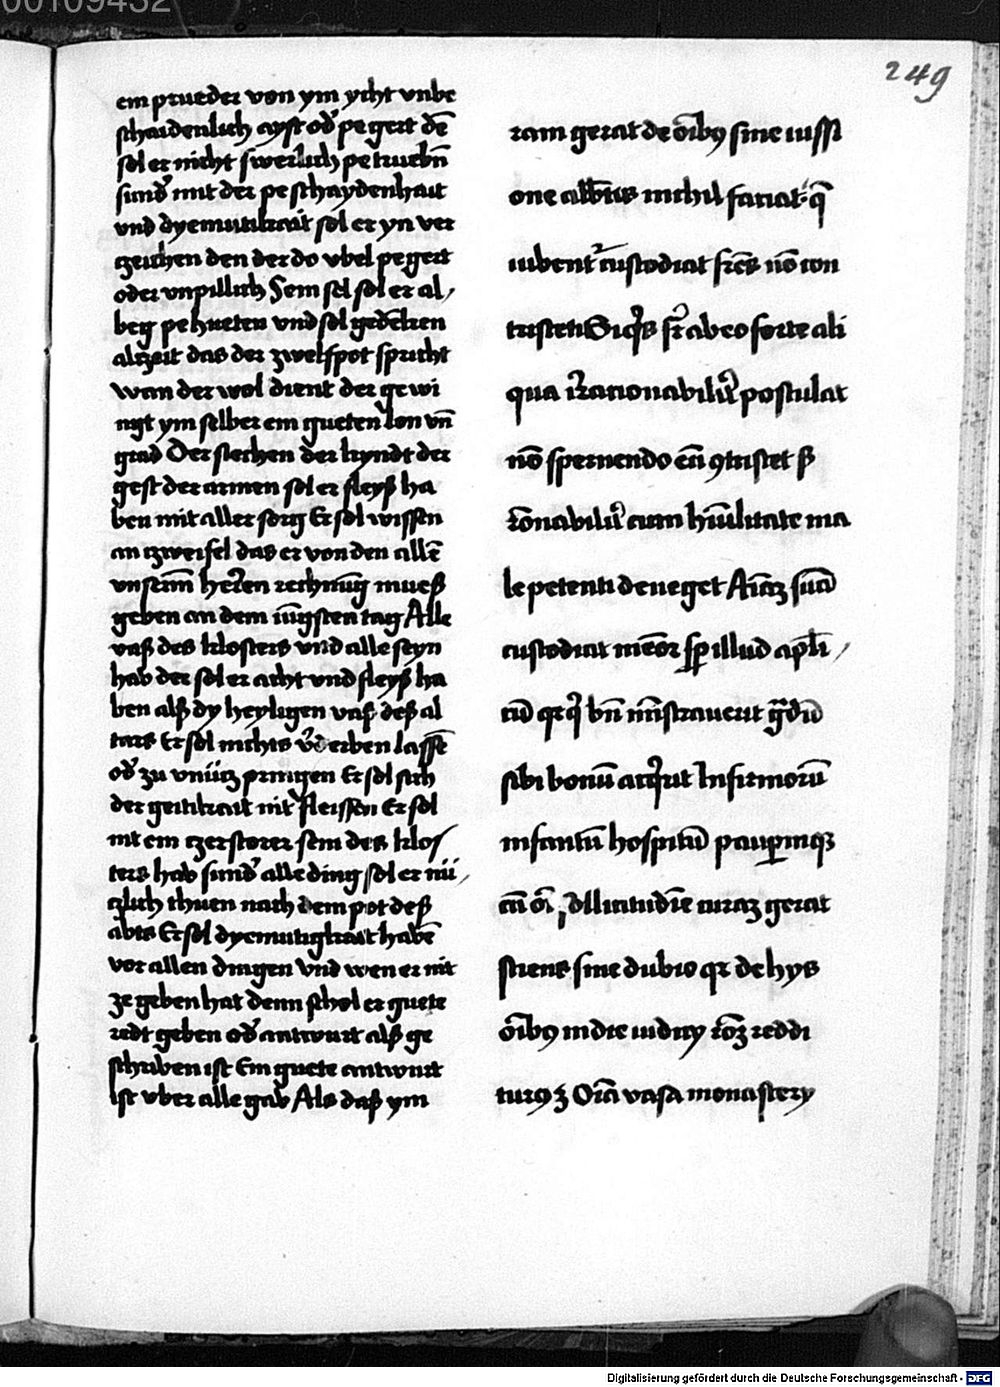 00109432
249
ein prueder von ym ycht vnbe
schaidenlich ayst od̕ pegert dē
sol er nicht swerlich petruebn̄
sund̕ mit der peschaydenhait
vnd dyemutikait sol er yn ver
tzeichen den der do vbel pegert
oder vnpillich Sein sel sol er al/
beg pehueten vnd sol gedēken
alzeit das der zwelfpot spricht
wan der wol dient der gewi
nigt ym selber ein gueten lon vn̄
grad Der siechen der kyndt der
gest der armen sol er fleyß ha
ben mit aller sorg Er sol wissen
an tzweifel das er von den allē
vnserm̄ herren rechnūg mueß
geben an dem iūgsten tag Alle
vaß des klosters vnd alle seyn
hab der sol er acht vnd fleyß ha
ben alß dy heyligen vaß deß al
tars Er sol nichts v̄derben lassē
od̕ zu vnütz pringen Er sol sich
der geitikait nit fleissen Er sol
nit ein tzerstorer sein des klos
ters hab sund̕ alle ding sol er nü/
tzlich thuen nach dem pot deß
abts Er sol dyemutigkait habē
vor allen dingen vnd wen er nit
ze geben hat denn schol er guete
redt geben od̕ antwurt alß ge
schriben ist Ein guete antwurt
ist vber alle gab Als daß ym
ram gerat de oībꝰ sine iussi
one abb̄tis nichil faciat q̄
iubent᷑ custodiat fr̄es nō con
tristet Si q̓s fr̄ ab eo forte ali
qua irracionabilit᷑ postulat
nō spernendo eū ꝯtristet sꝫ
rōnabilit᷑ cum hūilitate ma
le petenti deneget Aīaꝫ suā
custodiat meōr sꝑ illud apl̄i /
cū qꝛ q̓ bn̄ mīstrauerit g̈dū
sibi bonū acq̓rit Infirmorū
infantū hospitū pauꝑūqꝫ
cū oī sollicitudīe curaꝫ gerat
sciens sine dubio qꝛ de hys
oībꝰ in die iudicy rōꝫ reddi
turꝰ ꝫ Oīa vasa monastery
Digitalisierung gefördert durch die Deutsche Forschungsgemeinschaft - DFG